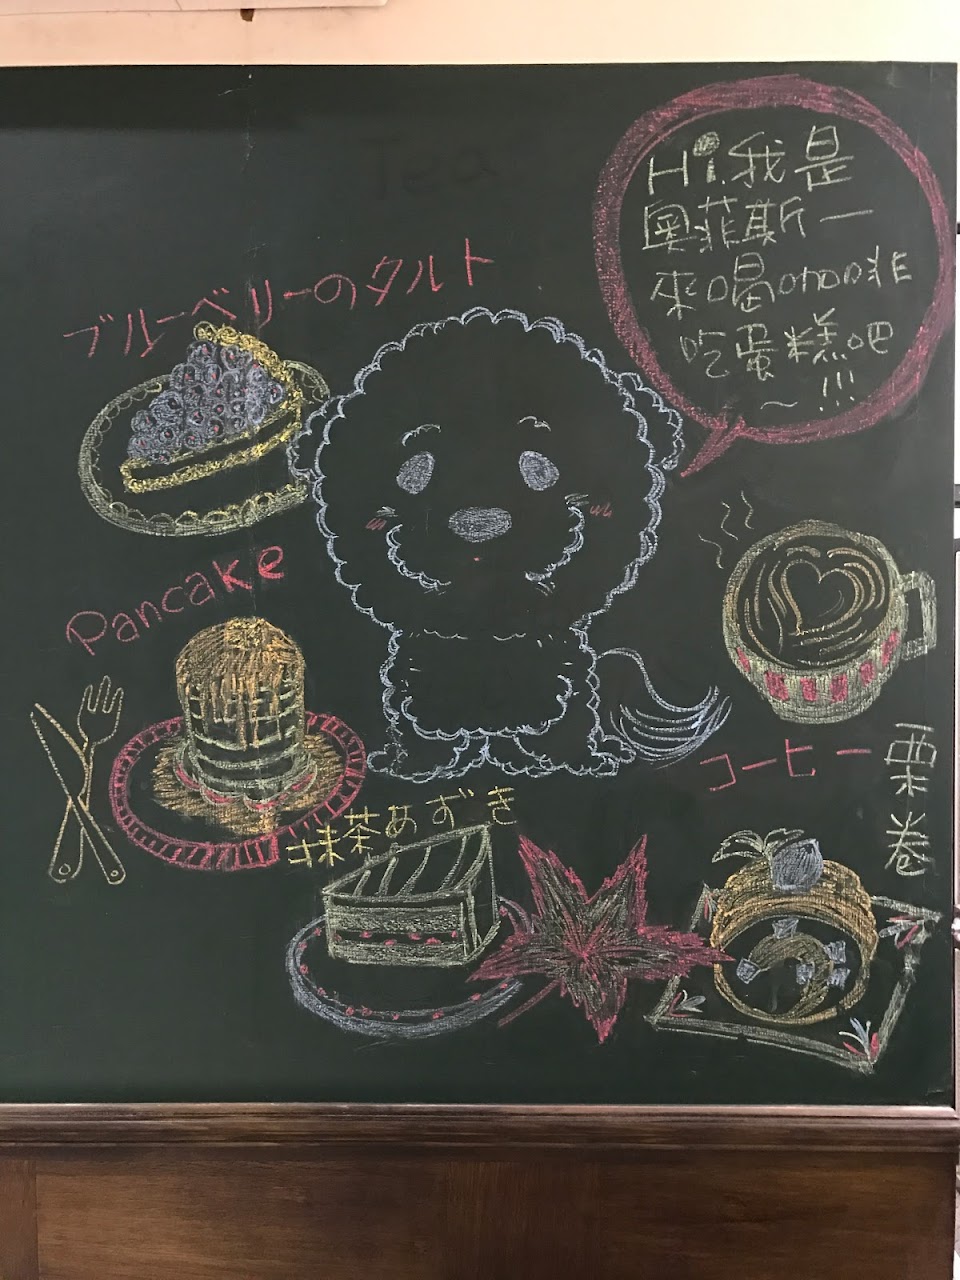 Tea
Hi.我是
奧菲斯一
來喝咖啡
吃蛋糕吧
~!!!
ブルーベリーのタルト
Pancake
コーヒー
栗卷
抹茶あずき